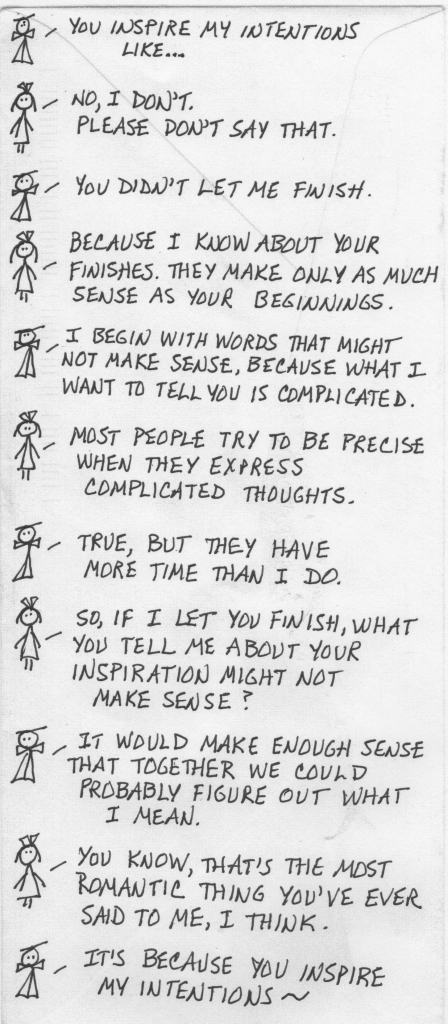 YOU INSPIRE MY INTENTIONS
LIKE...
NO, I DON'T.
PLEASE DON'T SAY THAT.
YOU DIDN'T LET ME FINISH.
BECAUSE I KNOW ABOUT YOUR
FINISHES. THEY MAKE ONLY AS MUCH
SENSE AS YOUR BEGINNINGS.
I BEGIN WITH WORDS THAT MIGHT
NOT MAKE SENSE, BECAUSE WHAT I
WANT TO TELL YOU IS COMPLICATED.
MOST PEOPLE TRY TO BE PRECISE
WHEN THEY EXPRESS
COMPLICATED THOUGHTS.
TRUE, BUT THEY HAVE
MORE TIME THAN I DO.
SO, IF I LET YOU FINISH, WHAT
YOU TELL ME ABOUT YOUR
INSPIRATION MIGHT NOT
MAKE SENSE?
IT WOULD MAKE ENOUGH SENSE
THAT TOGETHER WE COULD
PROBABLY FIGURE OUT WHAT
I MEAN.
YOU KNOW, THAT'S THE MOST
ROMANTIC THING YOU'VE EVER
SAID TO ME, I THINK.
IT'S BECAUSE YOU INSPIRE
MY INTENTIONS ~